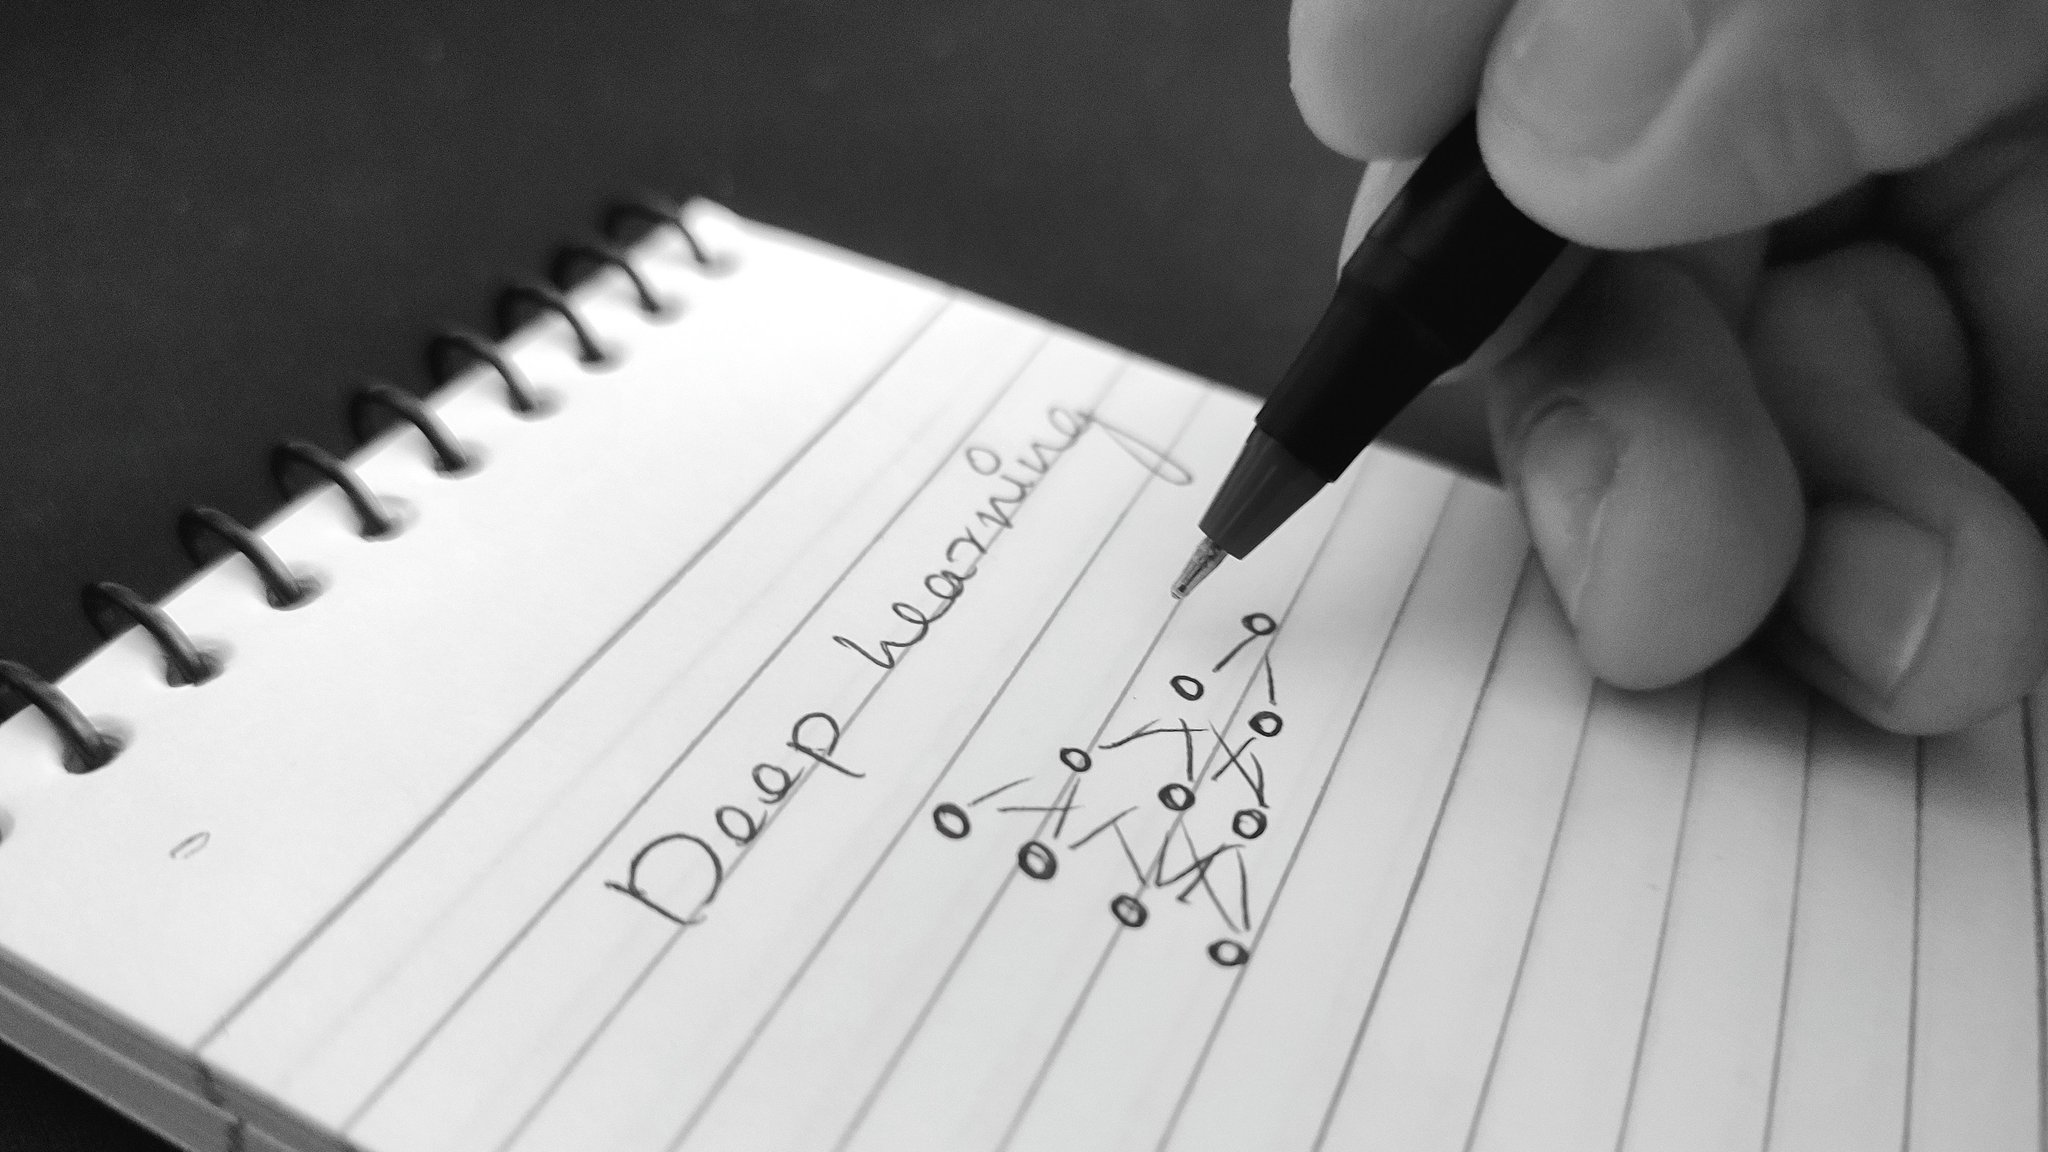 Deep learning